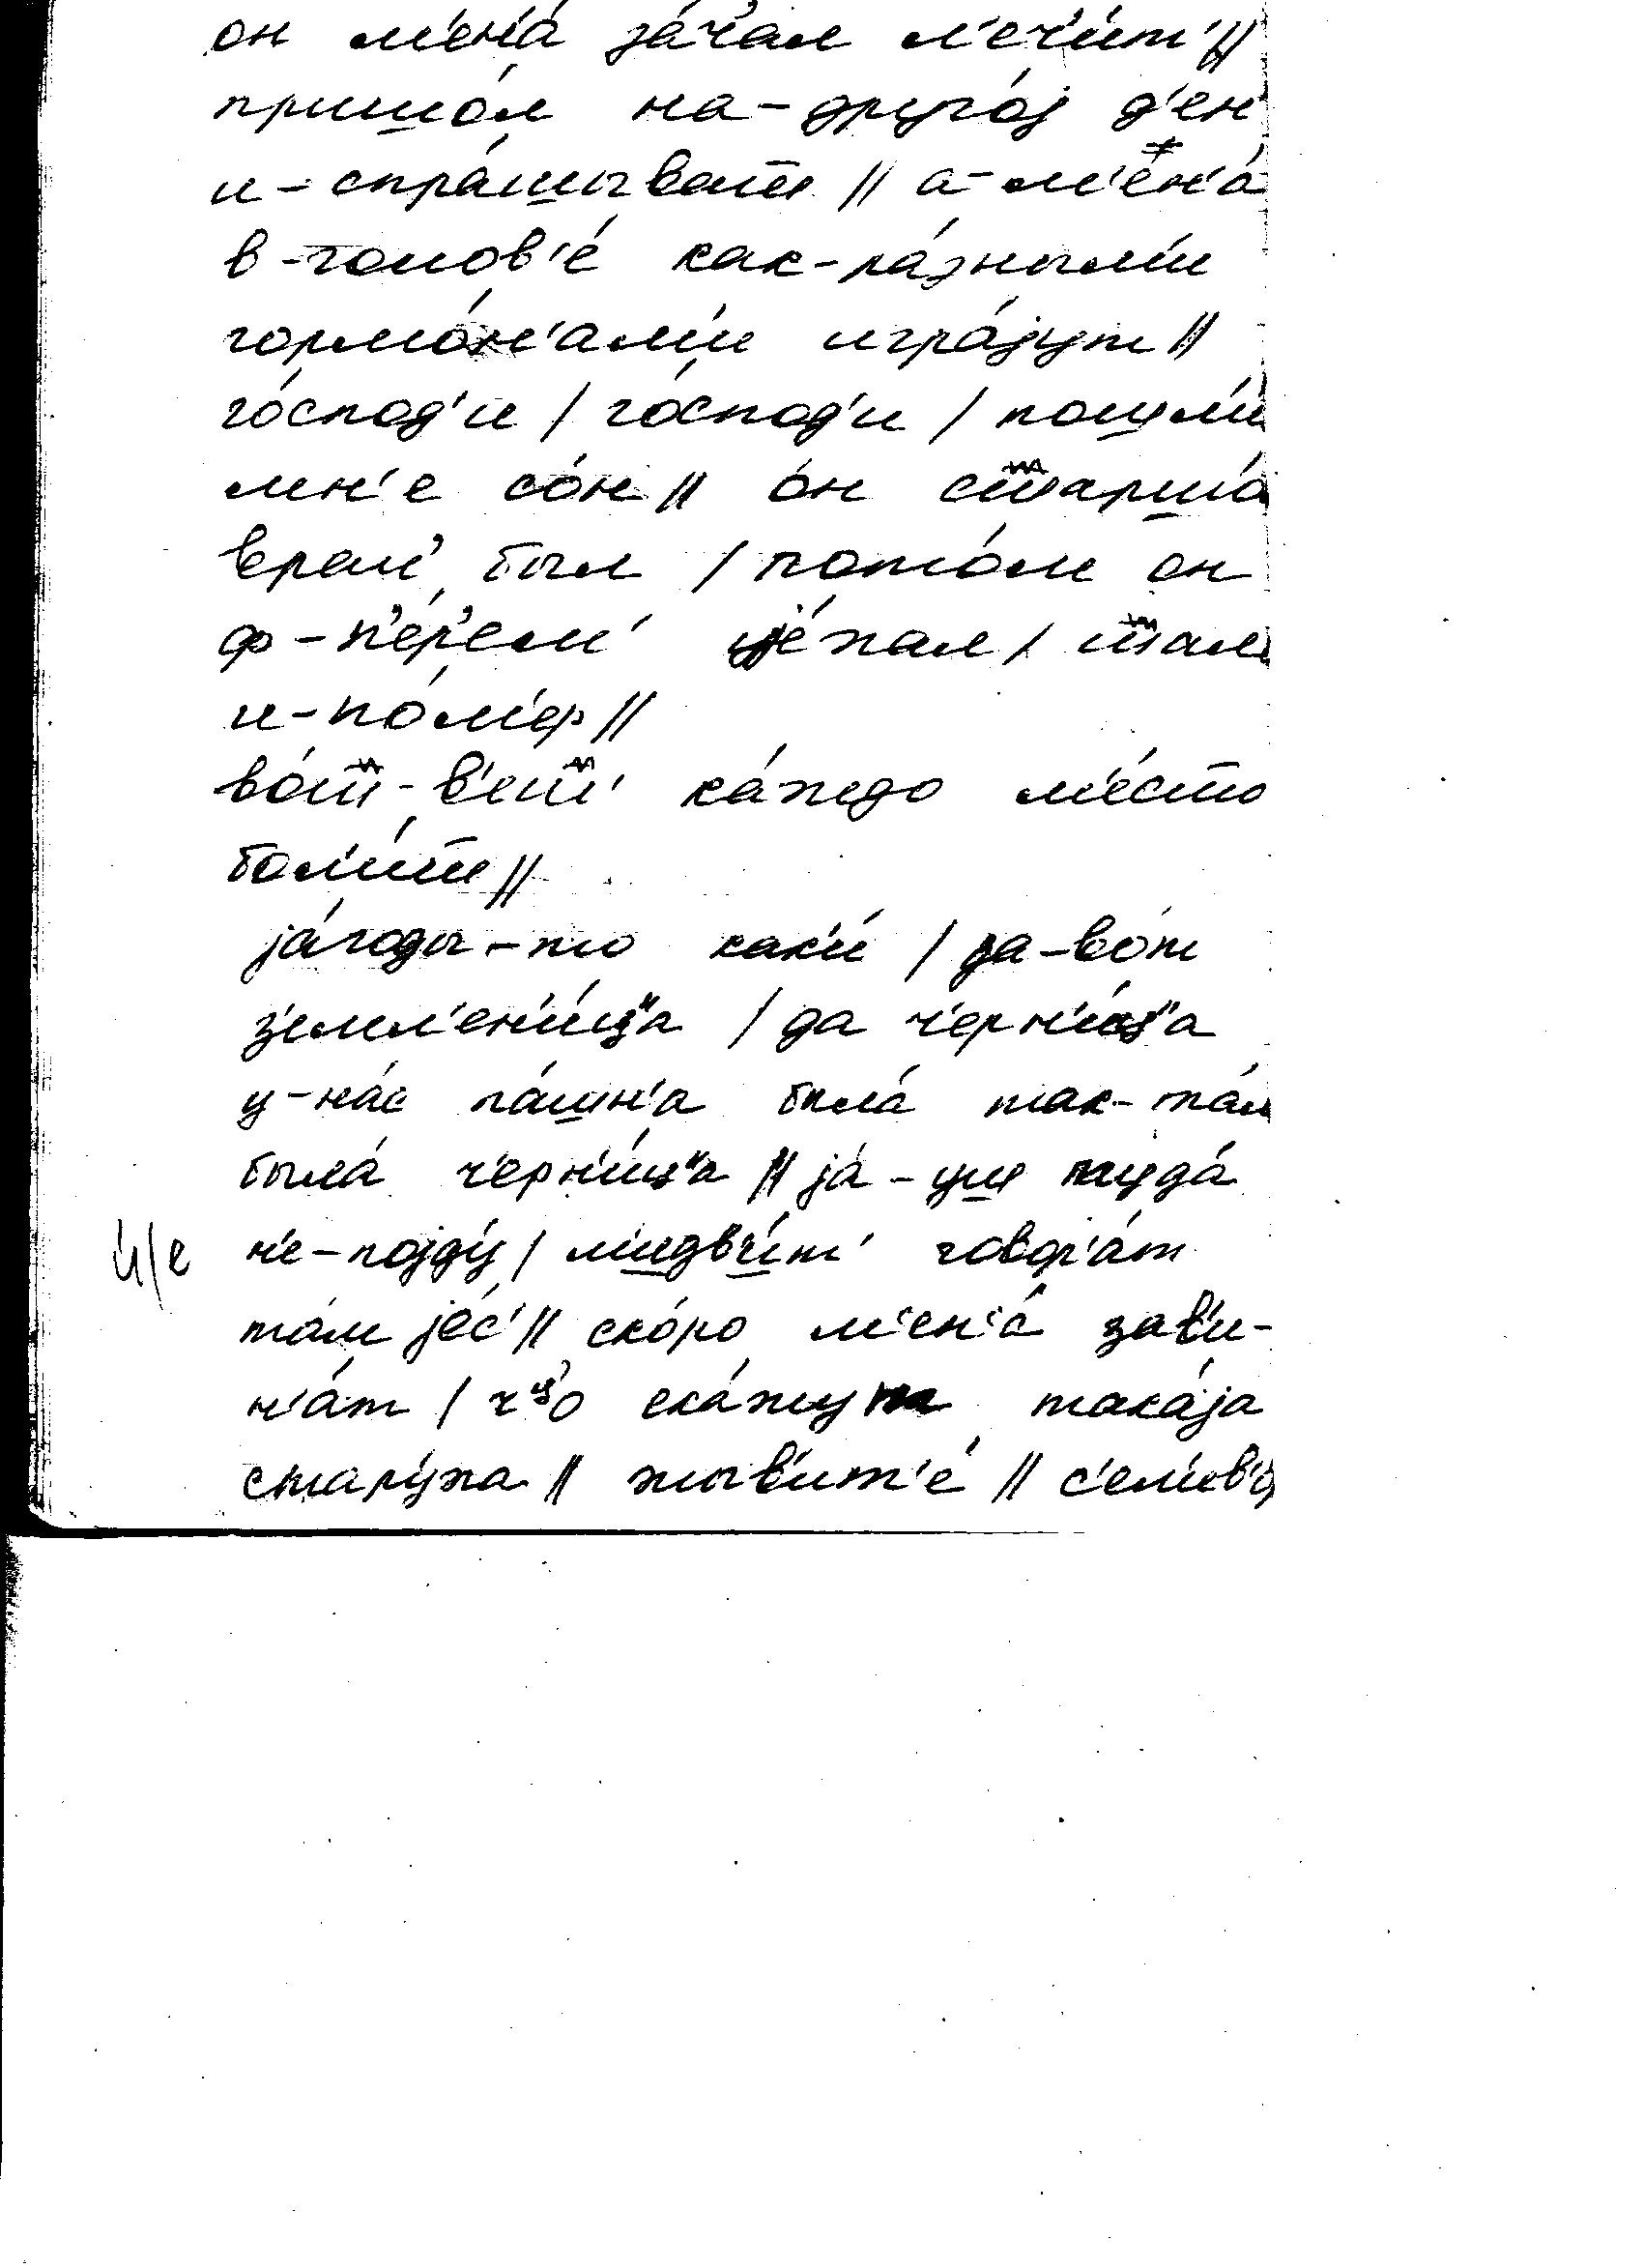 он м'ен'а́ за́ч'ал л'еч'и́т' //
пришо́л на-друго́j д'ен'
и-спра́шываты // а-м'ен'а́
в-голов'е́ как-ра́зным'и
гормо́н'ам'и игра́jут //
го́спод'и / го́спод'и / пошл'и́
мн'е со́н // о́н старшо́
врач' был / пото́м он
ф-п'е́р'ем' уjе́хал / там
и-по́м'ер //
во́т-в'ет' ка́ждо м'е́сто
бол'и́т //
jа́годы-то как'и́ / да-во́т
з'емл'ен'и́ц"а / да ч'ерн'и́ц"а
у-на́с па́шн'а была́ так-та́м
была́ ч'ерн'и́ц"а // jа́-уш туда́
и́/е н'е-поjду́ / м'идв'и́т' говор'а́т
та́м jе́с' // ско́ро м'ен'а́ зав'и-
н'а́т / ч'о ска́жут така́jа
стару́ха // жыв'ит'е́ //